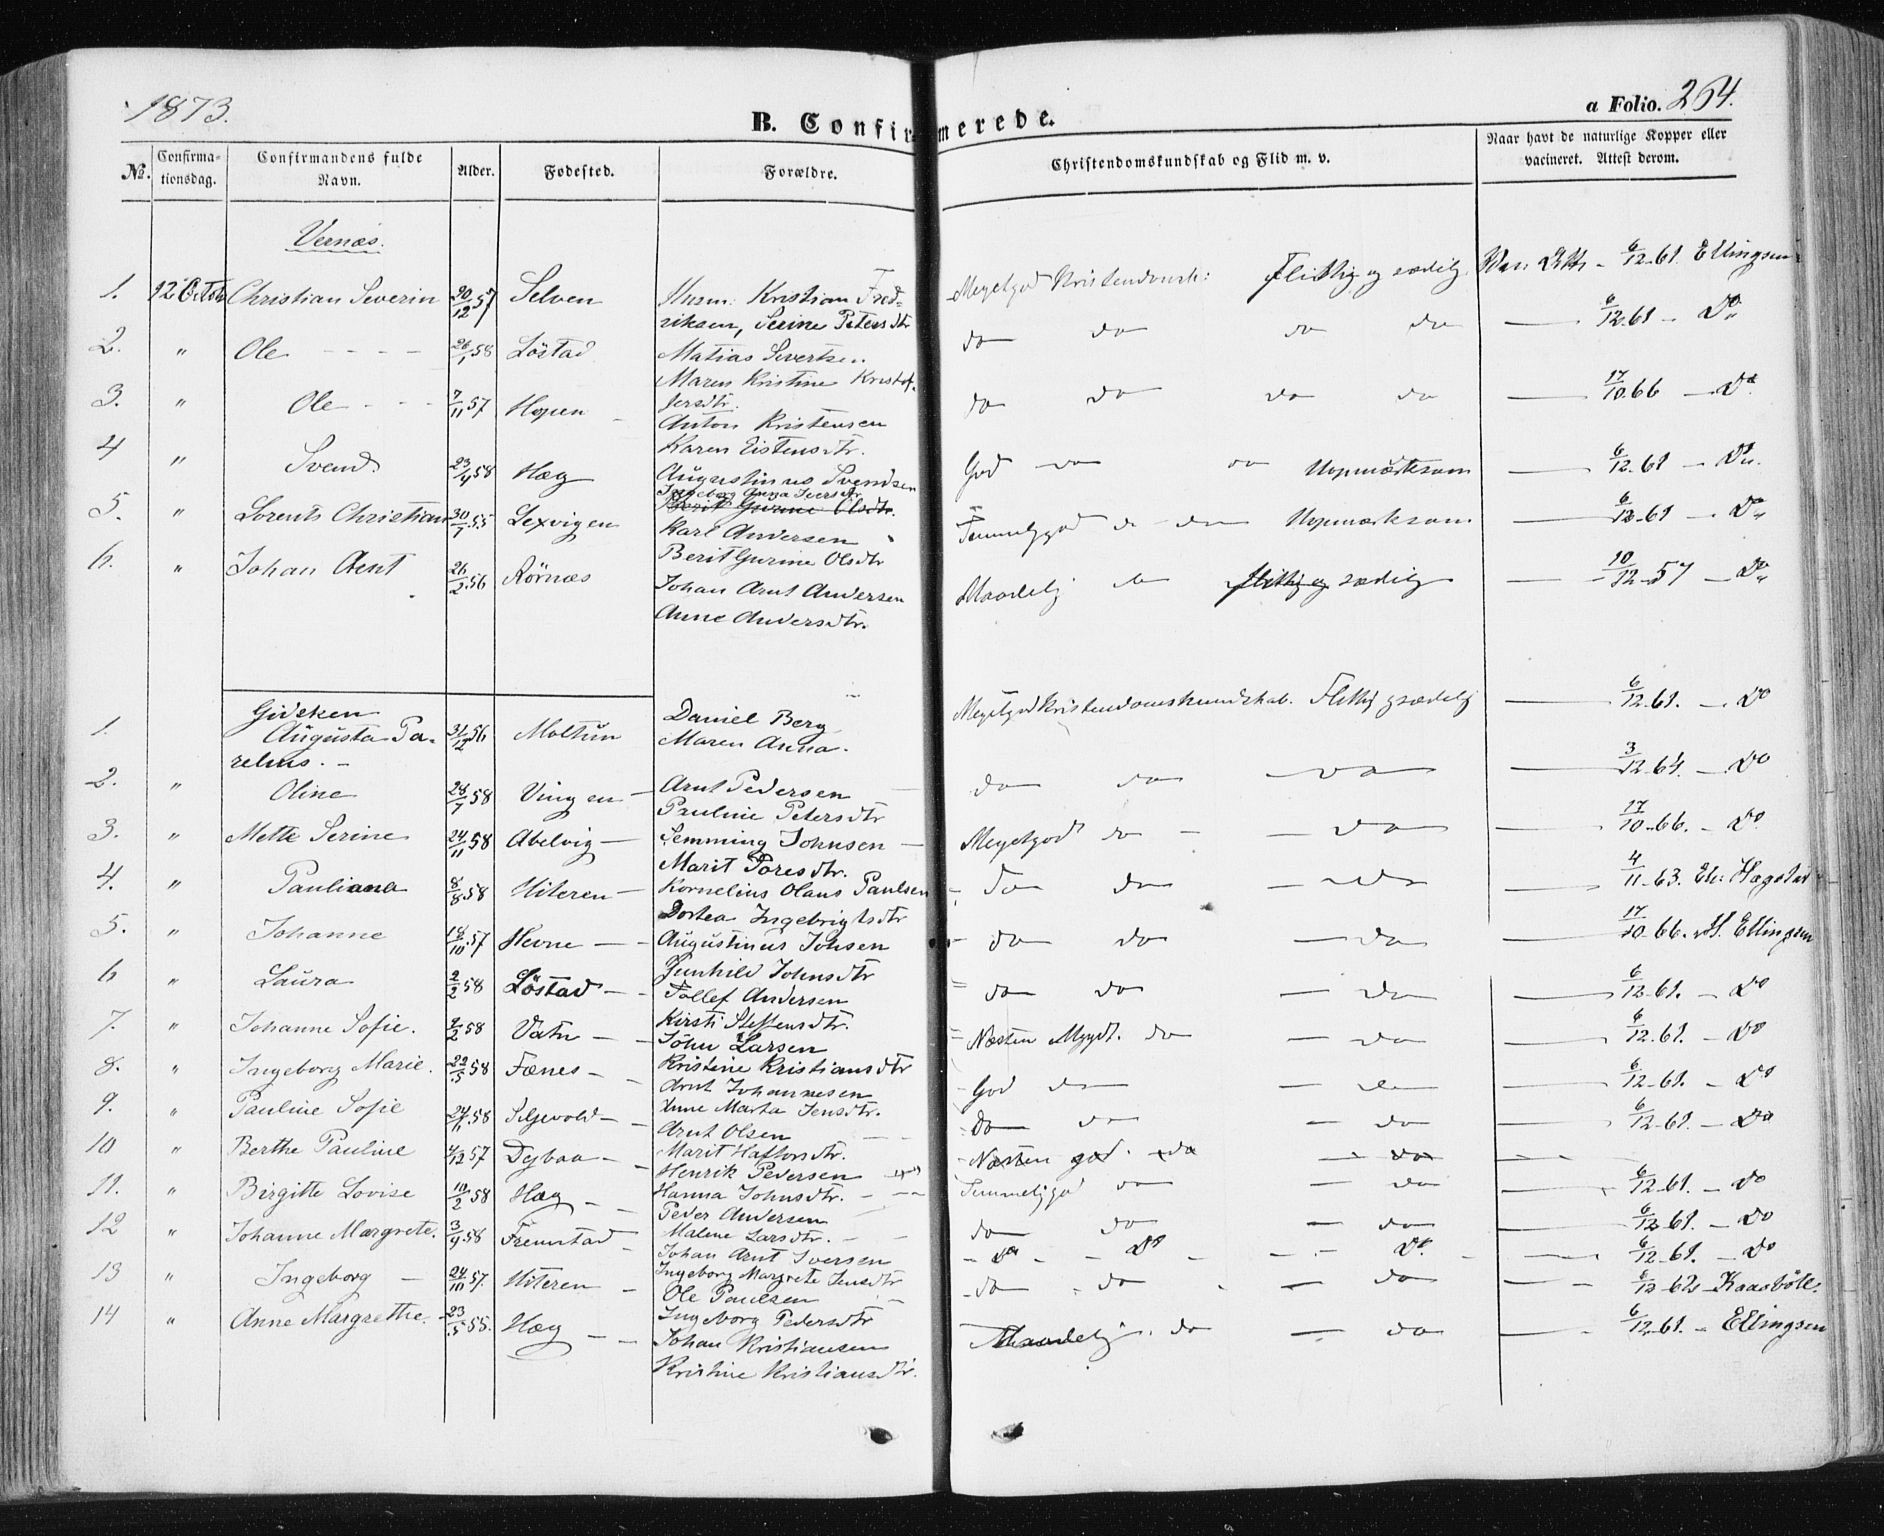 1873.
B. Confirmerede.
a Folio. 264.
No. Confirmationsdag. Confirmandens fulde Navn. Alder. Fødested. Forældre. Christendomskundskab og Flid m. v. Naar havt de naturlige Kopper eller vacineret. Attest derom.
Vernæs.
1. 12 Octob Christian Severin 30/12 57 Selven Husm: Kristian Fred- Megetgod Kristendomsk: Flittig og sædelig 6/12 61. Ellingsen
riksen, Serine Petersdtr
2. " Ole 26/1 58 Löstad Matias Sivertsen do do do do 6/12 61 - Do
Maren Kristine Kristof-
3. " Ole 7/11 57 Hopen fersdtr. do do do do 17/10 66 - Do
Anton Kristensen
Karen Eistensdtr.
4 " Svend 23/4 58 Hæg Augustinus Svendsen God do do Uopmærksom 6/12 61 - Do.
Ingeborg Anna Iversdtr
5. " Lorents Christian 30/7 55 Lexvigen Berit Gurine Olsdtr. Temmeliggod do Uopmærksom 6/12 61 - Do
Karl Andersen
6. " Johan Arnt 26/2 56 Rörnæs Berit Gurine Olsdtr Maadelig do flittig og sædelig 10/12 57 - Do
Johan Arnt Andersen
Anne Andersdtr.
1. Gidsken Daniel Berg Megetgod Kristendomskundskab. Flittig og sædelig 6/12 61. - Do
Augusta Pa- 31/12 56 Moltun Maren Anna.
relius. -
2. " Oline 28/7 58 Vingen Arnt Pedersen do do do 3/12 64. - Do
Pauline Petersdtr
3. " Mette Serine 24/11 58 Abelvig Lemming Johnsen Megetgod do do 17/10 66. - Do
Marit Toresdtr.
4. " Pauliana 8/8 58 Hiteren Kornelius Olaus Paulsen do do do 4/11 63. Eh: Hagstad
Dortea Ingebrigtsdtr
5. " Johanne 18/10 57 Hevne Augustinus Johsen do do do 17/10 66. H. Ellingsen
Gunhild Johnsdtr
6 " Laura 2/2 58 Löstad Tollef Andersen do do do 6/12 61. - Do
Kirsti Steffensdtr.
7. " Johanne Sofie. 9/2 58 Vatn John Larsen Næsten Mggdt. do do 6/12 61. - Do
Kristine Kristiansdtr
8. " Ingeborg Marie. 22/5 58 Fænes Arnt Johannesen God do do 6/12 61. - Do
Anne Marta Jensdtr.
9. " Pauline Sofie 24/11 58 Selgevold Arnt Olsen do do do 6/12 61. - Do
Marit Haftorsdtr.
10 " Berthe Pauline 4/12 57 Dybaa Henrik Pedersen Næsten god. do do
Hanna Johnsdtr.
11. " Birgitte Lovise 10/2 58 Hæg Peder Andersen Temmeliggod do do 6/12 61. - Do
Malene Larsdtr.
12 " Johanne Margrete. 3/9 58 Fremstad Johan Arnt Iversen do do do 6/12 61. - Do
Ingeborg Margrete Jensdtr Do Do Do. 6/12 61. - Do
13 " Ingeborg 24/10 57. Hiteren Ole Paulsen do do do 6/12 62 - Kaasböll.
Ingeborg Pedersdtr
14 " Anne Margrethe. 23/5 55. Hæg Johan Kristiansen Maadelig. do do 6/12 61. - Ellingsen
Kristine Kristiansdtr.